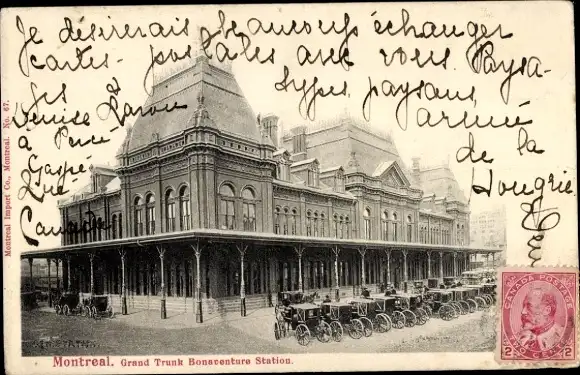 Je désirerais beaucoup échanger
cartes-postales avec vous Paysa-
ges types paysans
Denise Caron armée
a Percé de la
Gaspé Hongrie
Que
Canada
Montreal Import Co., Montreal. No. 67.
CANADA POSTAGE
2 TWO CENTS 2
Montreal. Grand Trunk Bonaventure Station.